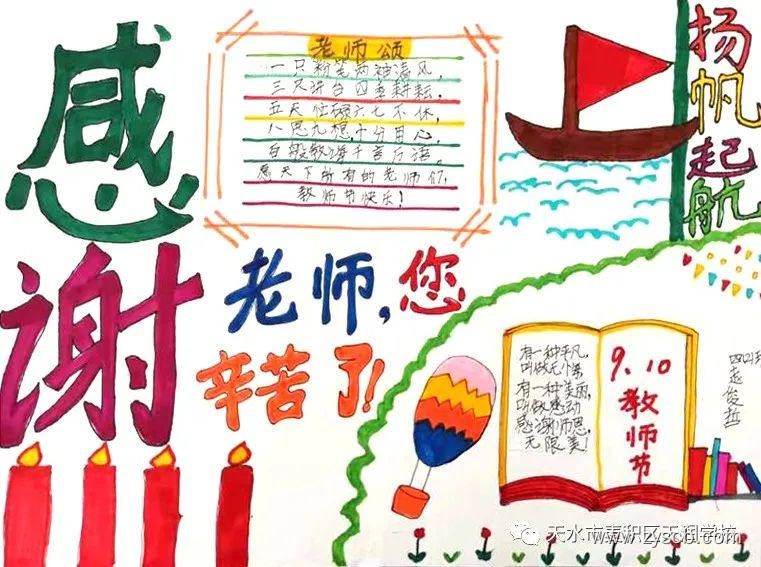 感
谢
老师颂
一只粉笔两袖清风,
三尺讲台四季耕耘,
五天位硕六七不休,
八思九想十分用心,
百般教诲千言万语。
愿天下所有的老师们,
教师节快乐!
扬帆起航
老师,您
辛苦了!
有一种平凡,
叫做无
有一种美丽,
叫做感动
感谢师恩,
无限美!
9.10
教师节
赵俊哲
天水市麦积区天润学校
www.zyscb.com